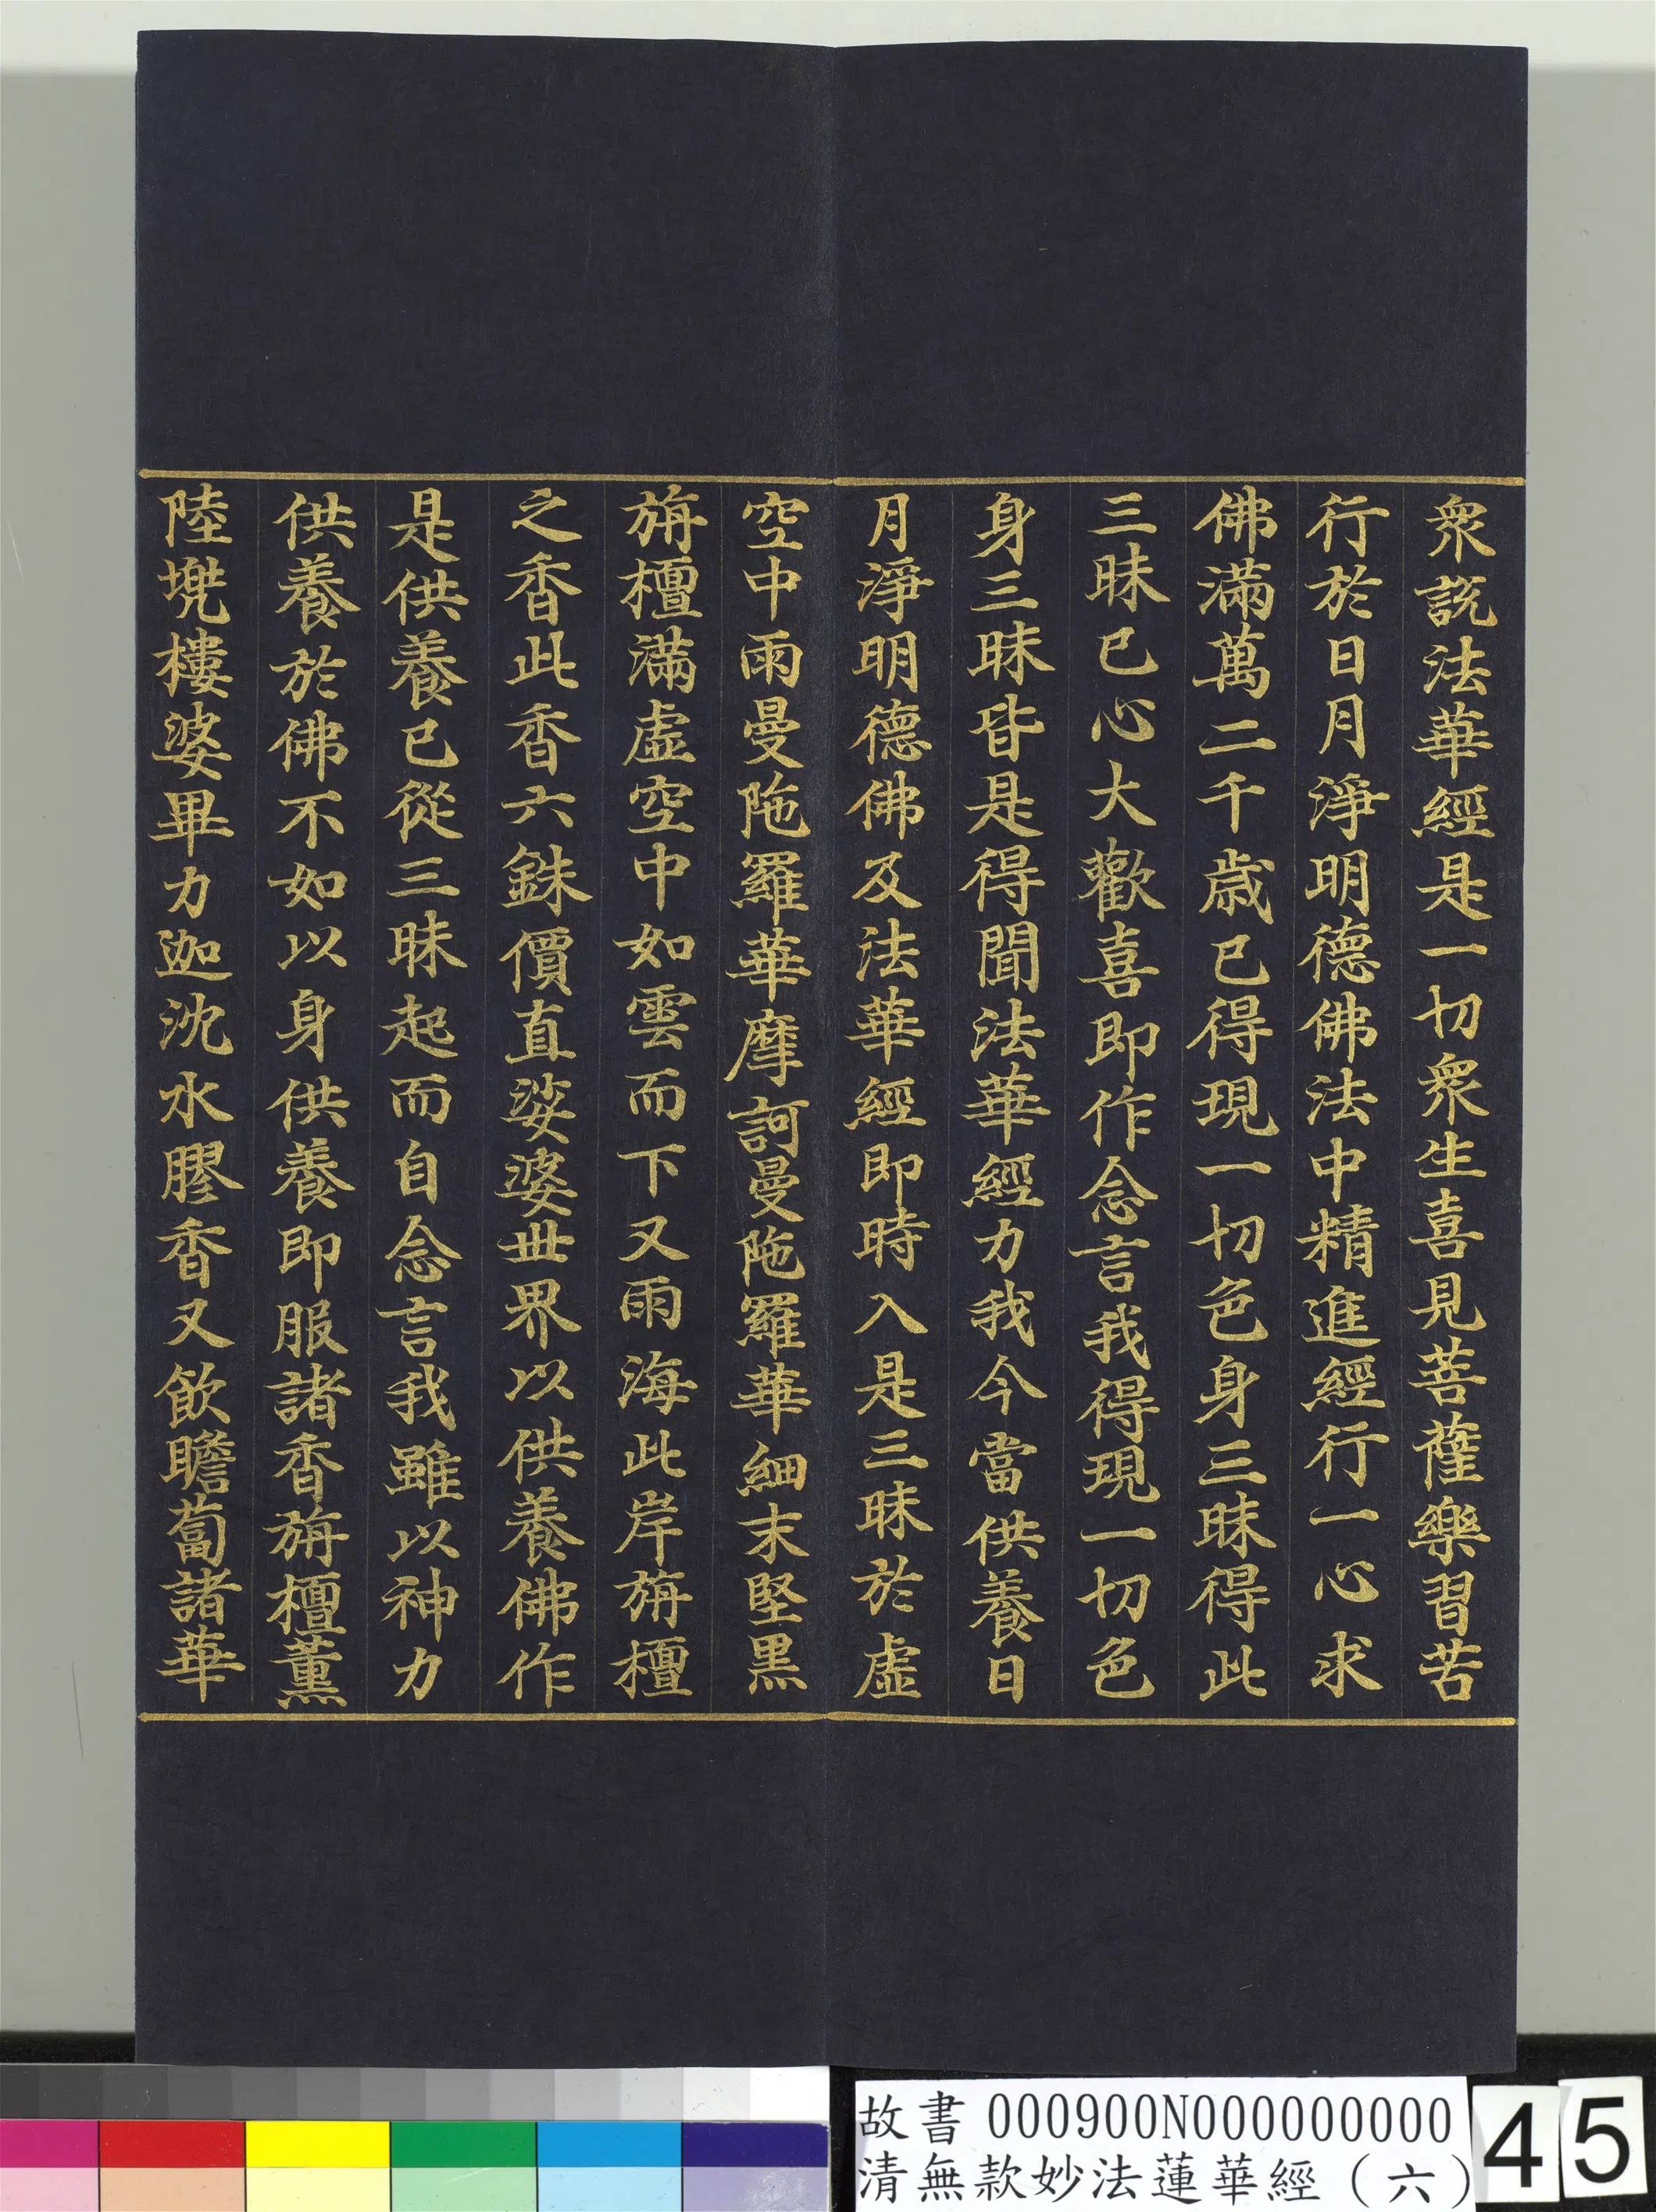 衆説法華經是一切衆生喜見菩薩樂習苦
行於日月淨明德佛法中精進經行一心求
佛滿萬二千歲已得現一切色身三昧得此
三昧已心大歡喜即作念言我得現一切色
身三昧皆是得聞法華經力我今當供養日
月淨明德佛及法華經即時入是三昧於虛
空中雨曼陁羅華摩訶曼陁羅華細末堅黑
旃檀滿虛空中如雲而下又雨海此岸旃檀
之香此香六銖價直娑婆世界以供養佛作
是供養已從三昧起而自念言我雖以神力
供養於佛不如以身供養即服諸香旃檀薰
陸兠樓婆畢力迦沈水膠香又飲瞻蔔諸華
故書 000900N000000000
清無款妙法蓮華經（六）
45